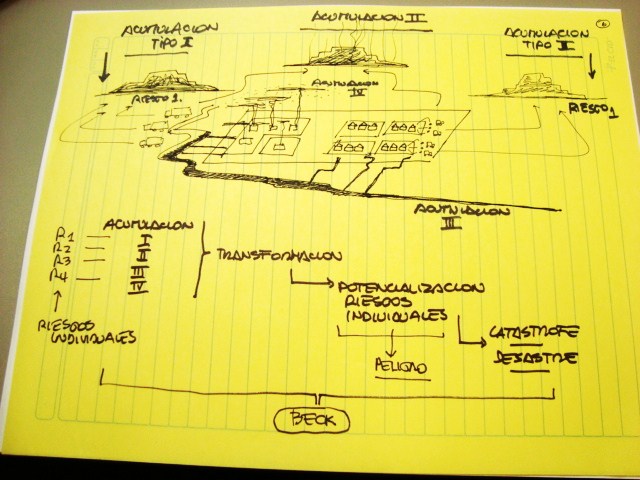 ACUMULACION
TIPO I
ACUMULACION II
ACUMULACION
TIPO II
6
RIESGO 1.
ACUMULACION
IV
RIESGO 1
ACUMULACION
III
R1
R2
R3
R4
ACUMULACION
I
II
III
IIII
RIESGOS
INDIVIDUALES
TRANSFORMACION
POTENCIALIZACION
RIESGOS
INDIVIDUALES
PELIGRO
CATASTROFE
DESASTRE
BECK